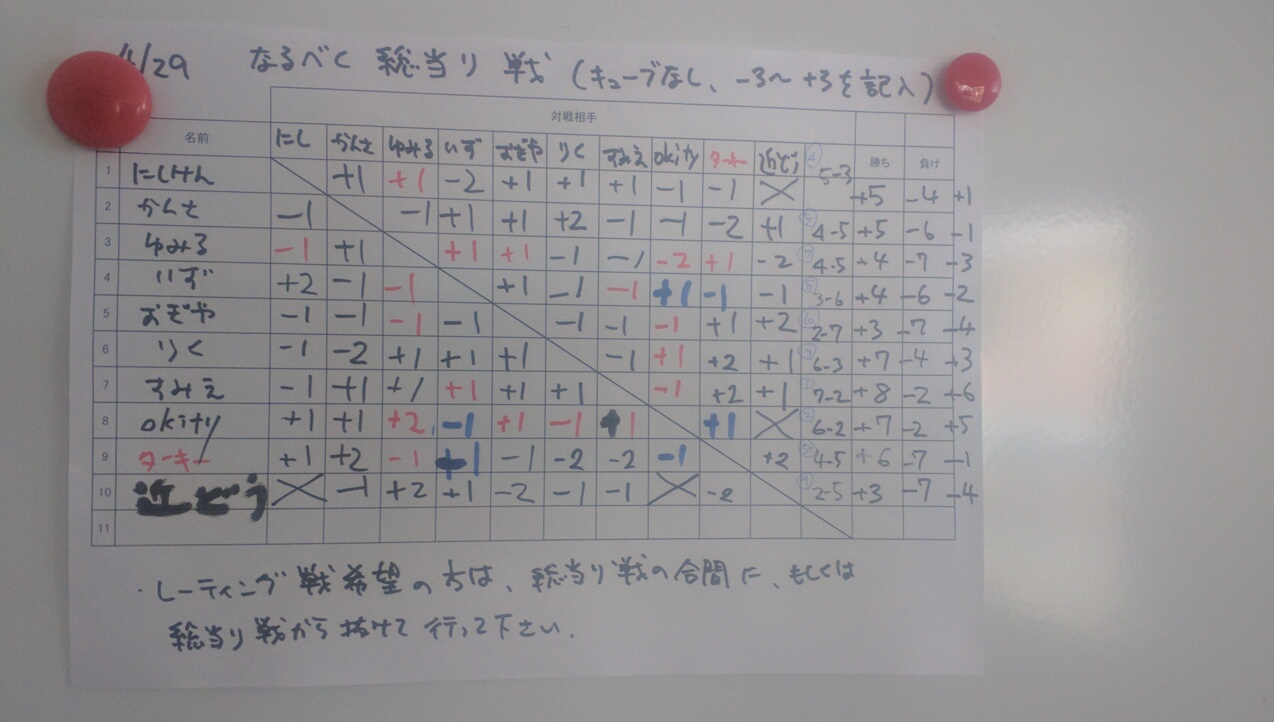 4/29 なるべく 総当り 戦 (キューブなし、-3〜+3を記入)
対戦相手
名前 にし かんさ ゆみる いず おぎや りく すみえ okity ターキー 近どう 勝ち 負け
1 にしけん +1 +1 -2 +1 +1 +1 -1 -1 × ④ 5-3 +5 -4 +1
2 かんさ -1 -1 +1 +1 +2 -1 -1 -2 +1 4-5 +5 -6 -1
3 ゆみる -1 +1 +1 +1 -1 -1 -2 +1 -2 4-5 +4 -7 -3
4 いず +2 -1 -1 +1 -1 -1 +1 -1 -1 3-6 +4 -6 -2
5 おぎや -1 -1 -1 -1 -1 -1 -1 +1 +2 ⑩ 2-7 +3 -7 -4
6 りく -1 -2 +1 +1 +1 -1 +1 +2 +1 ③ 6-3 +7 -4 +3
7 すみえ -1 +1 +1 +1 +1 +1 -1 +2 +1 ① 7-2 +8 -2 +6
8 okity +1 +1 +2 -1 +1 -1 +1 +1 × ② 6-2 +7 -2 +5
9 ターキー +1 +2 -1 +1 -1 -2 -2 -1 +2 4-5 +6 -7 -1
10 近どう × -1 +2 +1 -2 -1 -1 × -2 2-5 +3 -7 -4
11
・レーティング戦希望の方は、総当り戦の合間に、もしくは
総当り戦から抜けて行って下さい.